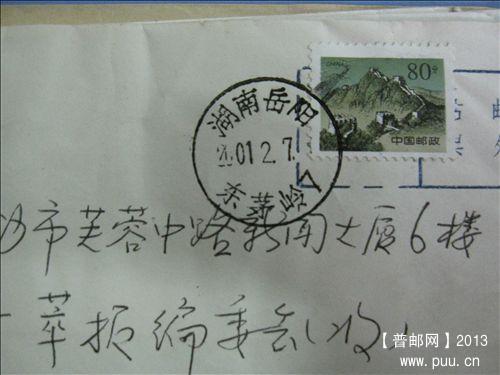 CHINA
80分
中国邮政
湖南岳阳
2001.2.7
东茅岭
沙市芙蓉中路新闻大厦6楼
萃报编委会(收)
【普邮网】2013
www.puu.cn